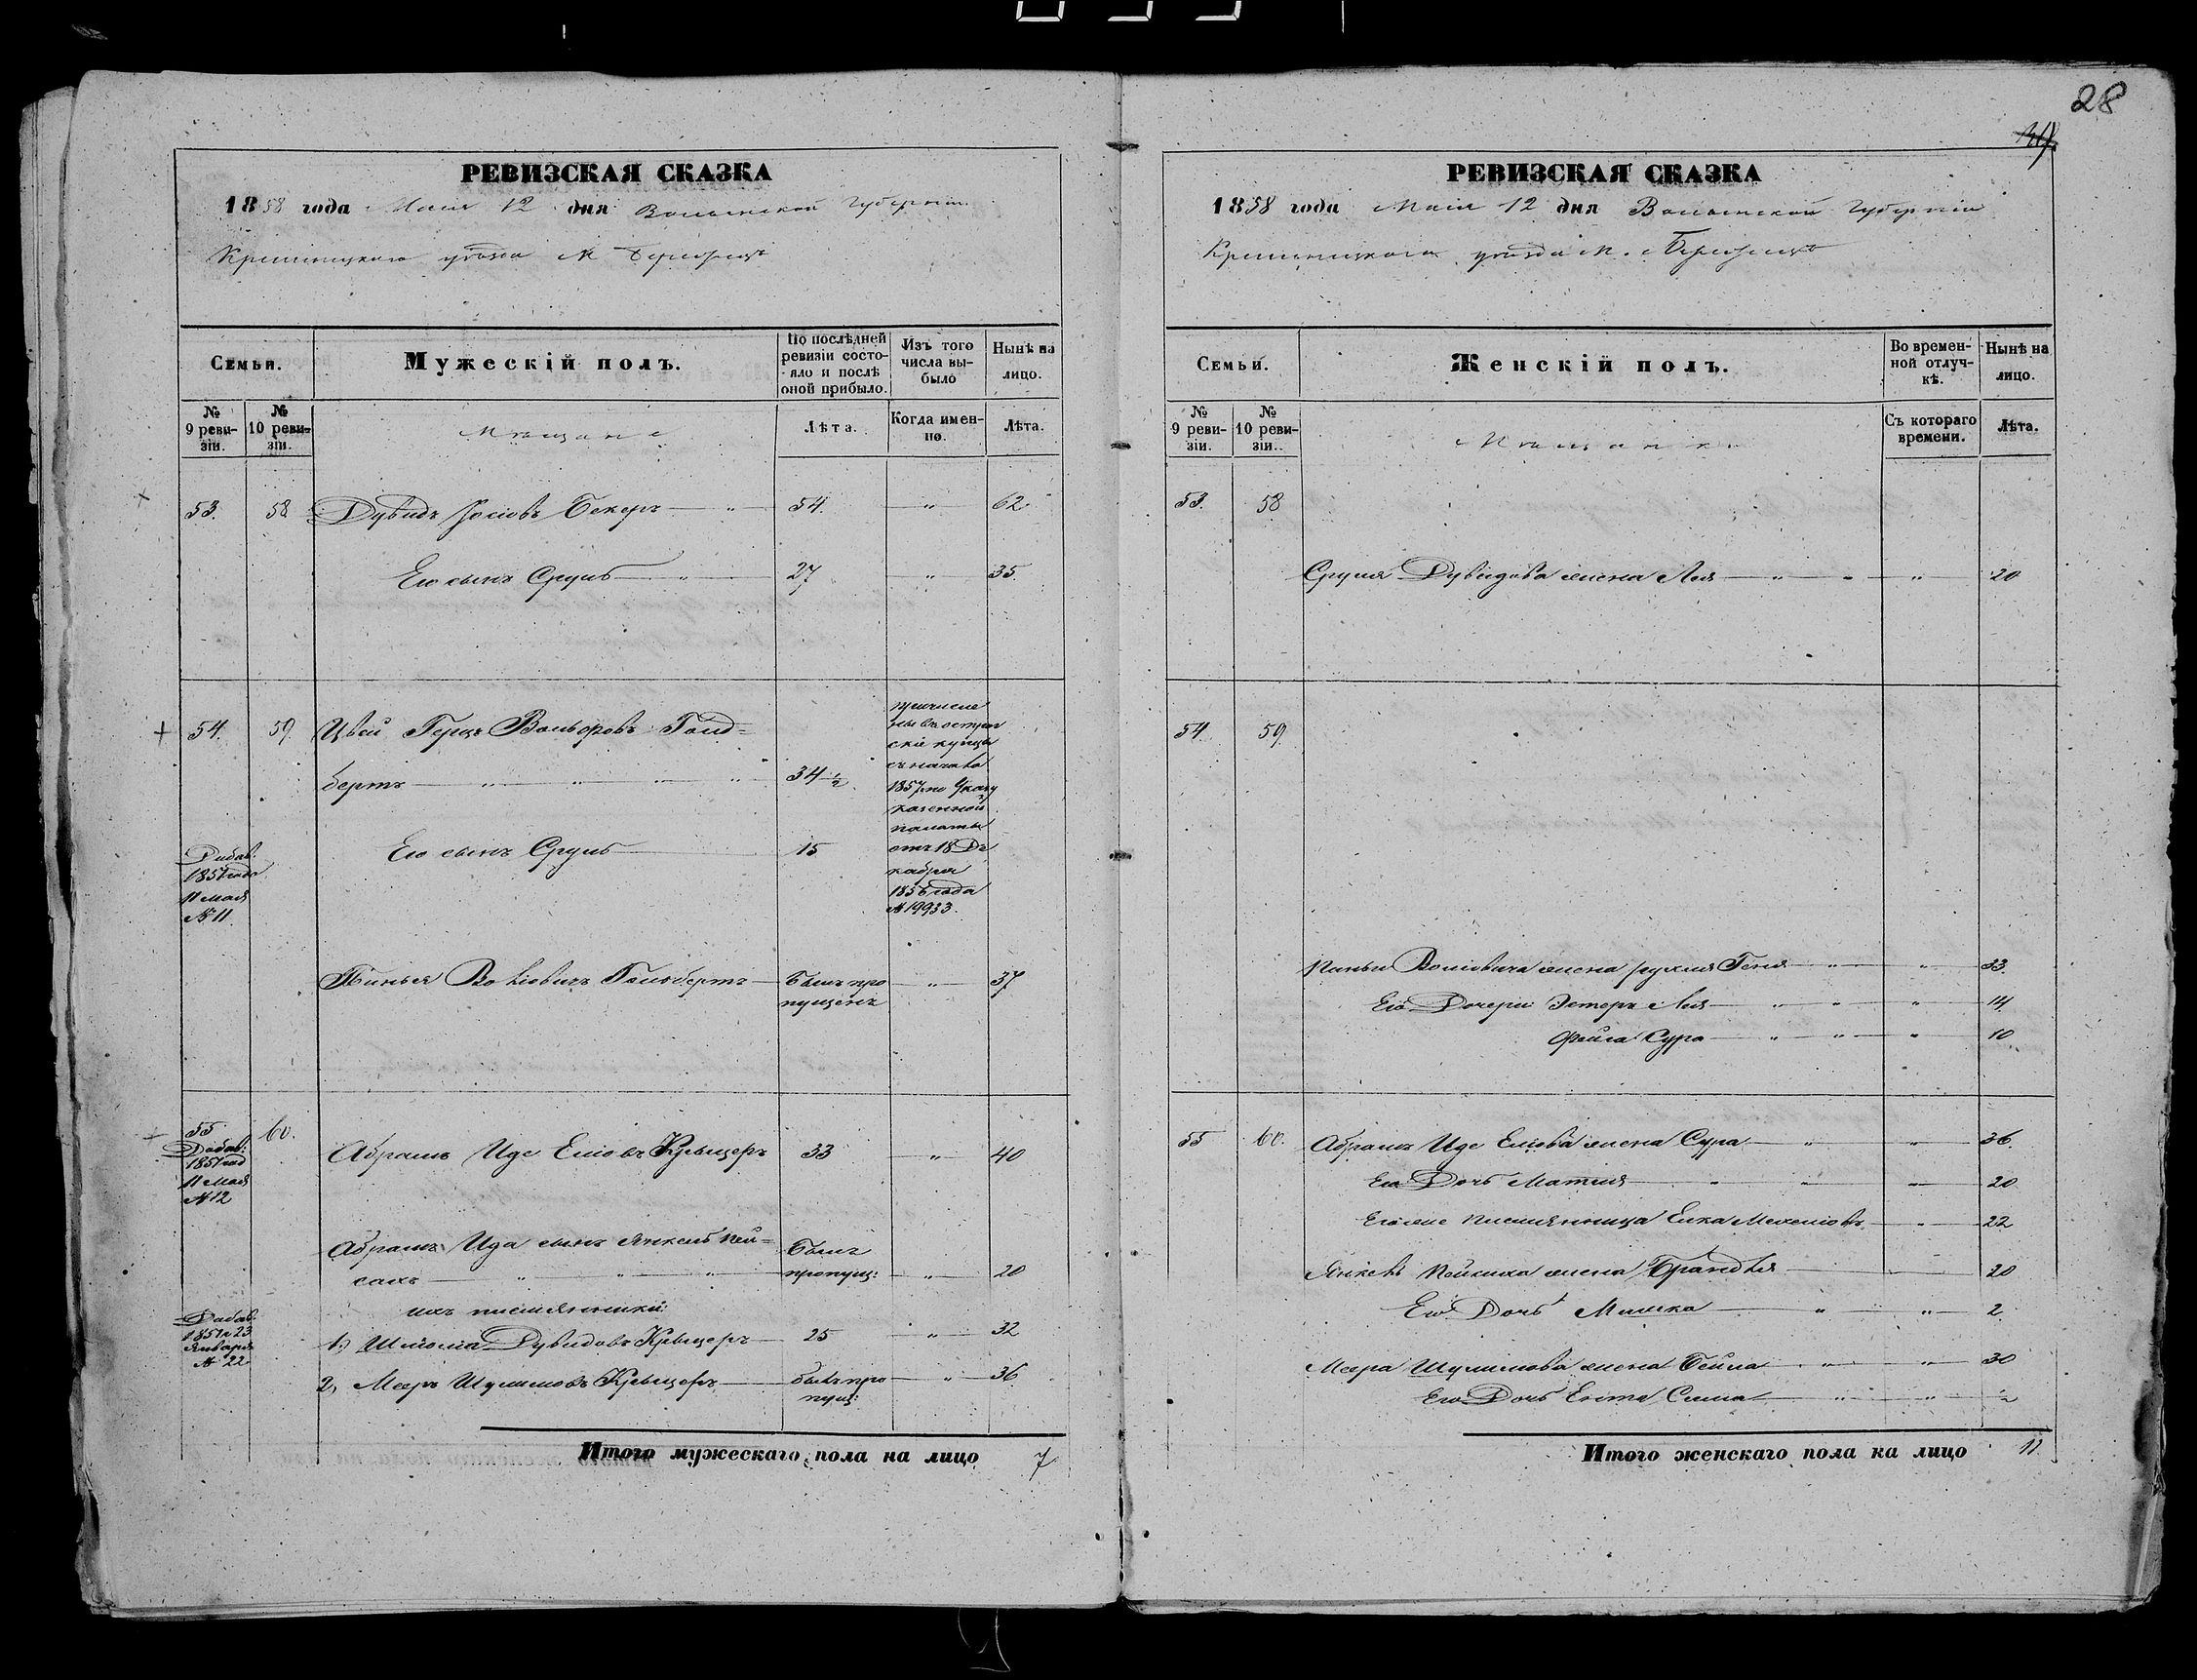 28
РЕВИЗСКАЯ СКАЗКА
1858 года Маія 12 дня Волынской Губерніи
Кременецкаго уѣзда М Бережецъ
Семьи.
Мужескій полъ.
По послѣдней ревизіи состояло и послѣ оной прибыло.
Изъ того числа выбыло
Нынѣ на лицо.
№ 9 ревизіи.
№ 10 ревизіи.
Мѣщане
Лѣта.
Когда именно.
Лѣта.
53. 58 Дувидъ Іосіовъ Бекеръ — " 54. " 62
Его сынъ Сруль — " — 27 " 35.
54. 59. Цвей Герцъ Вольфовъ Гольд=
бертъ — " — " — " — " 34 1/2
причисле
ны въ острог
скіе купцы
съ начала
1857 по Указу
казенной
палаты
отъ 18 Де
кабря
1856 года
№ 19933.
Добав:
1851 года
11 мая
№ 11
Его сынъ Сруль — 15
Пинья Волиовичъ Гольбертъ — Былъ про — " — 37
пущенъ
55. 60. Абрамъ Иде Еліовъ Крыцеръ 33 " 40
Добав:
1851 год
11 Мая
№ 12
Абрамъ Ида сынъ Янкель Пей=
сахъ — " — " — " Былъ пропущ: — " — 20
ихъ племянники:
Добав.
1851 г 23
Января
№ 22
1.) Шліома Дувидовъ Крыцеръ — 25 " 32
2, Мееръ Шулимовъ Крыцеръ — былъ про — " — 36
пущ:
Итого мужескаго пола на лицо 7
РЕВИЗСКАЯ СКАЗКА
1858 года Маія 12 дня Волынской Губерніи
Кременецкаго уѣзда М. Бережецъ
Семьи.
Женскій полъ.
Во временной отлучкѣ.
Нынѣ на лицо.
№ 9 ревизіи.
№ 10 ревизіи..
Мѣщанки
Съ котораго времени.
Лѣта.
53. 58
Сруля Дувидова жена Лея — " — " — " — 20
54. 59.
Пиньи Воліовича жена Рухля Геня — " — " — 33.
Его Дочери Эстеръ Лея — " — " — " — 14.
Фейга Сура — " — " — " — 10
55 60. Абрамъ Иде Еліова жена Сура — " — " — 36.
Его Дочь Матля — " — " — 20
Его же племянница Елка — " — 22
Янкель Пейсаха жена Брандля — 20
Его Дочь Малка — " — " — 2.
Меера Шулимова жена Бейла — " — " — 30
Его Дочь Ента Сима — " — " — 1/2
Итого женскаго пола на лицо 11